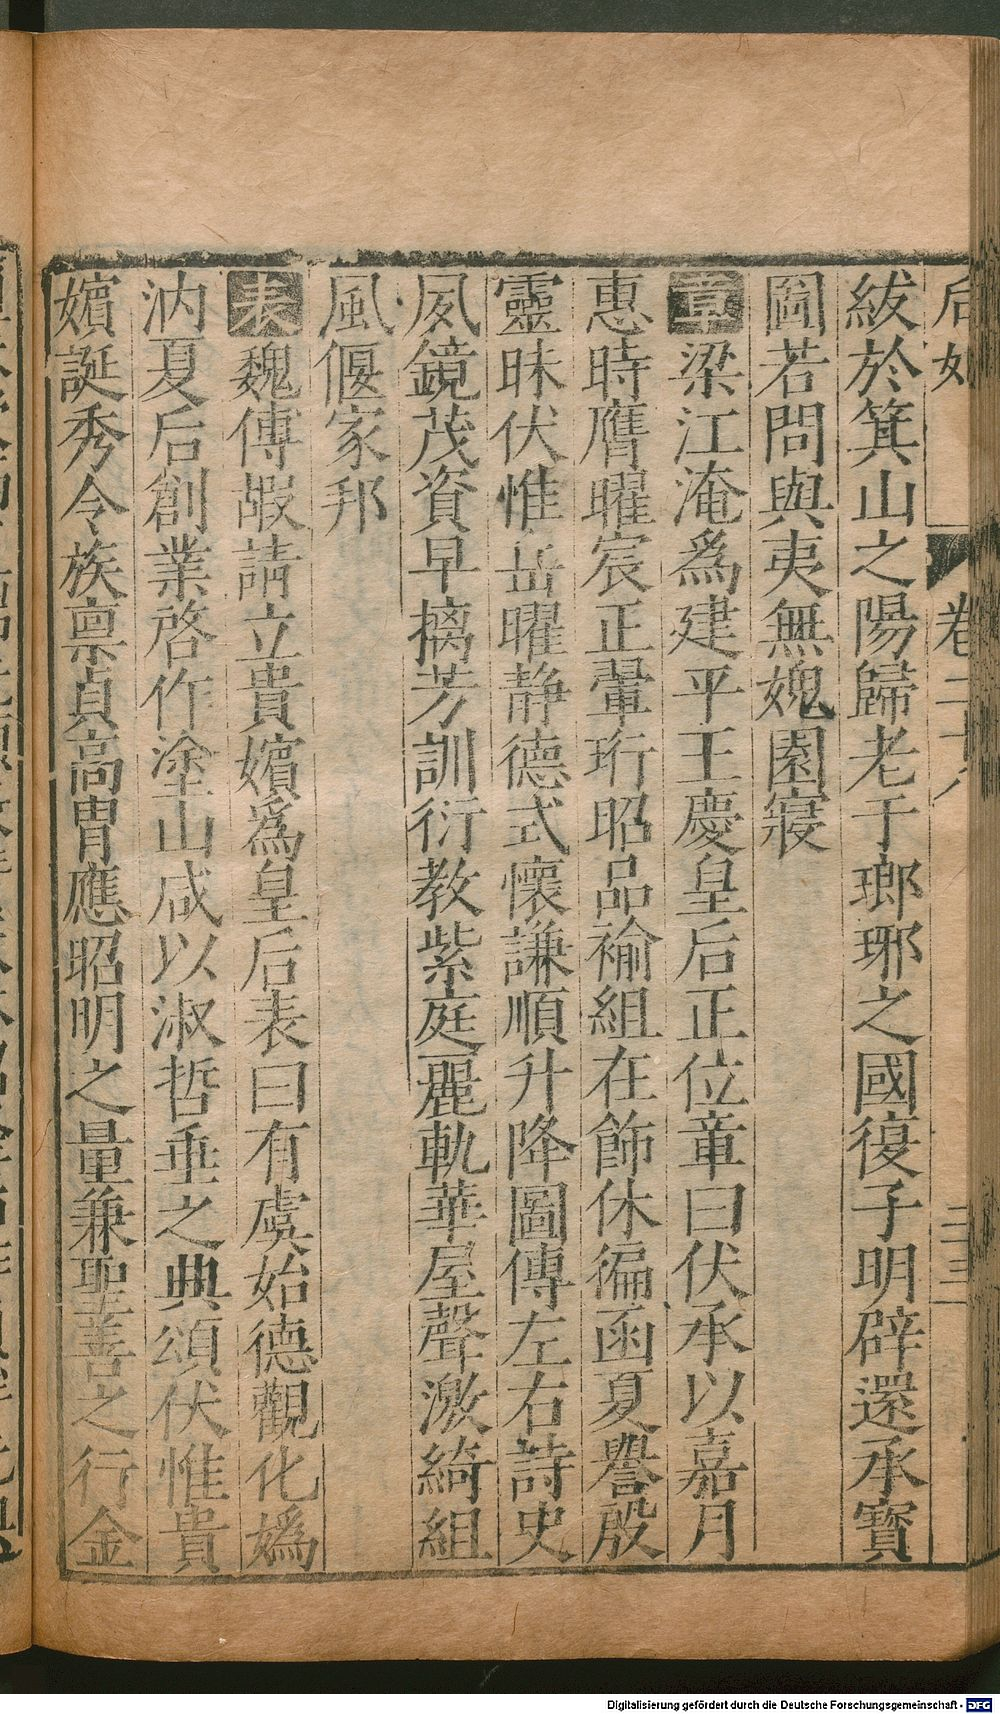 后妃 卷二十八 三三
紱於箕山之陽歸老于瑯琊之國復子明辟還承寶
圖若問與夷無媿園寢
章梁江淹爲建平王慶皇后正位章曰伏承以嘉月
惠時膺曜宸正翬珩昭品褕組在飾休徧函夏譽殷
靈昧伏惟岳曜静德式懷謙順升降圖傳左右詩史
夙鏡茂資早摛芳訓衍教紫庭麗軌華屋聲激綺組
風偃家邦
表魏傅嘏請立貴嬪爲皇后表曰有虞始德觀化嬀
汭夏后創業啓作塗山咸以淑哲垂之典頌伏惟貴
嬪誕秀令族禀貞高胄應昭明之量兼聖善之行金
Digitalisierung gefördert durch die Deutsche Forschungsgemeinschaft - DFG